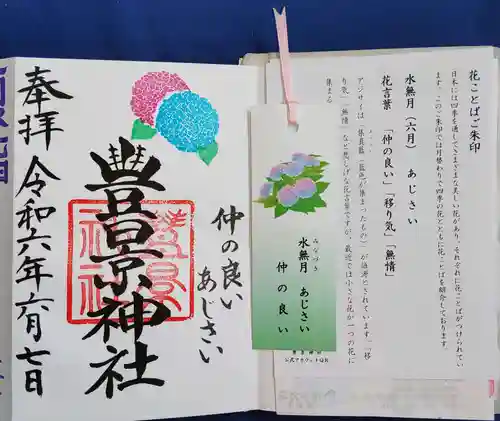 花ことばご朱印
日本には四季を通してさまざまな美しい花があり、それぞれに花ことばがつけられてい
ます。このご朱印では月替わりで四季の花とともに花ことばを紹介しております。
水無月(六月) あじさい
花言葉 「仲の良い」「移り気」「無情」
アジサイは、集真藍(藍色が集まったもの)が語源とされています。「移
り気」「無情」など悲しげな花言葉ですが、最近では小さな花が一つの花に
集まる
みなづき
水無月 あじさい
仲の良い
豊景神社
公式アカウントQR
仲の良い
あじさい
豊景神社
奉拝 令和六年六月七日